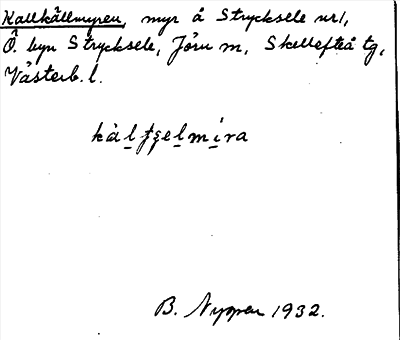 Kallkällmyren, myr å Strycksele nr 1,
Ö. byn Strycksele, Jörn m, Skellefteå tg,
Västerb. l.
kàlʈʂelmíra
B. Nyman 1932.